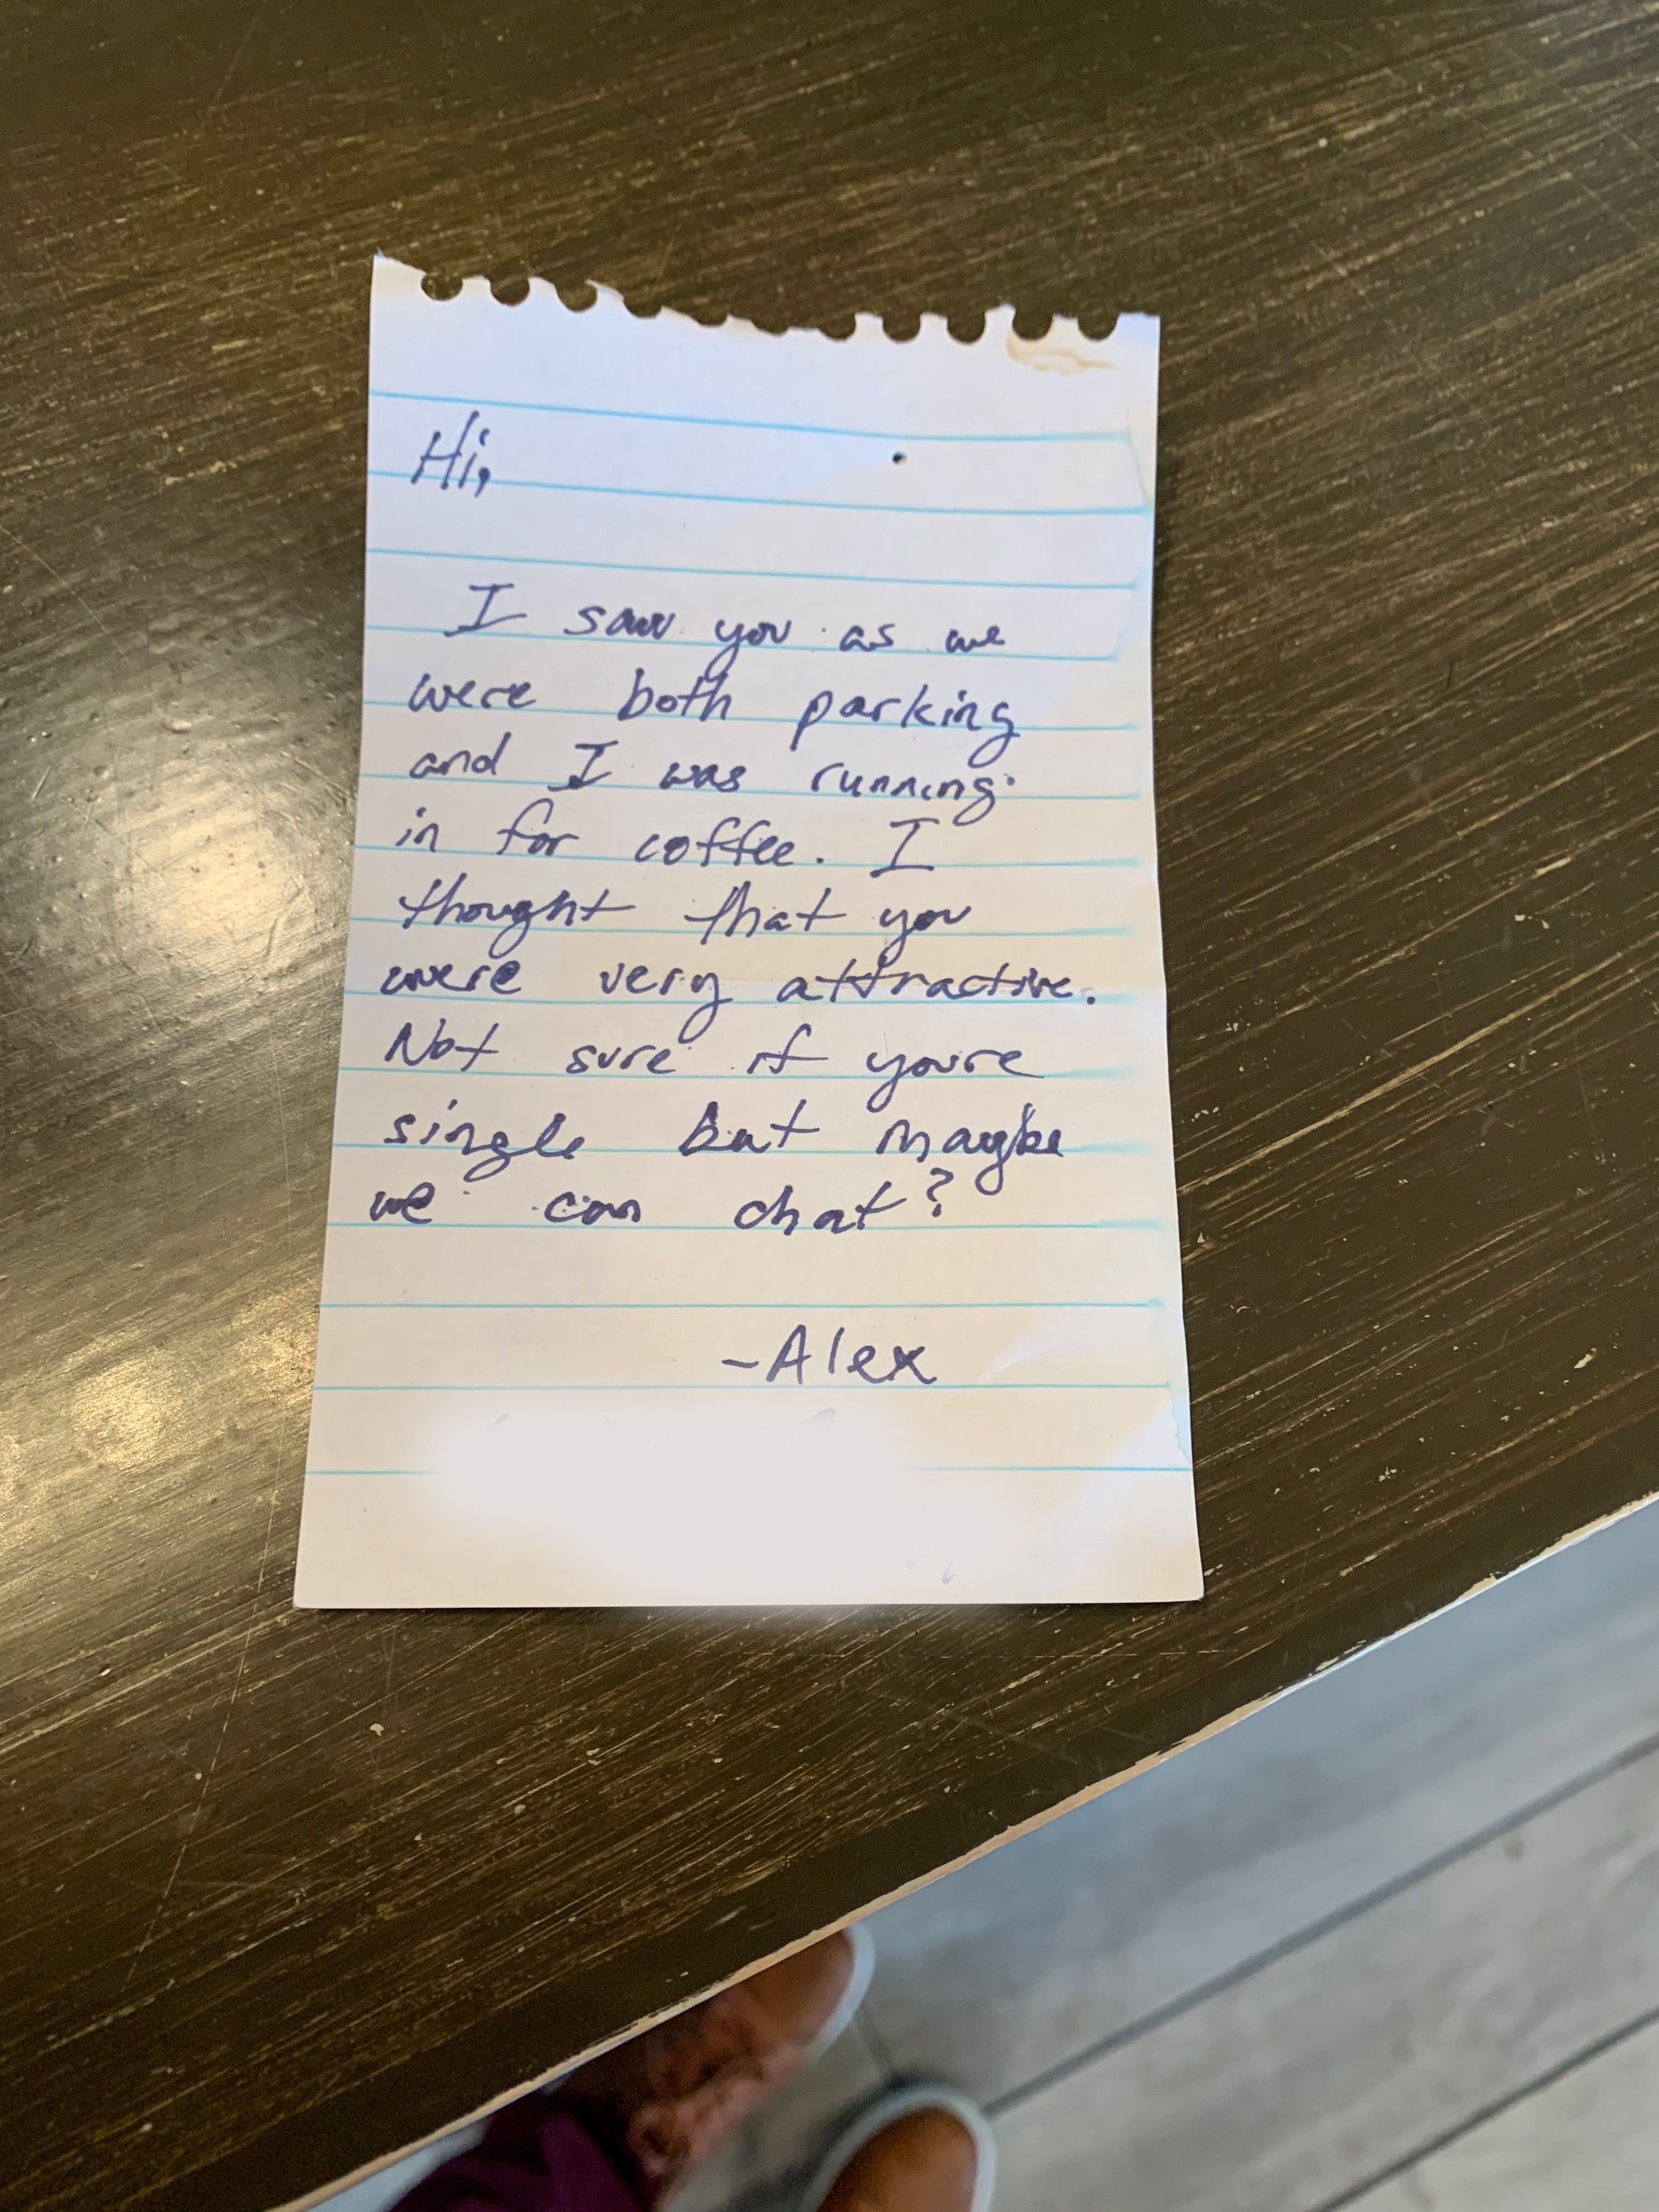 Hi,
I saw you as we
were both parking
and I was running
in for coffee. I
thought that you
were very attractive.
Not sure if youre
single but maybe
we can chat?
-Alex